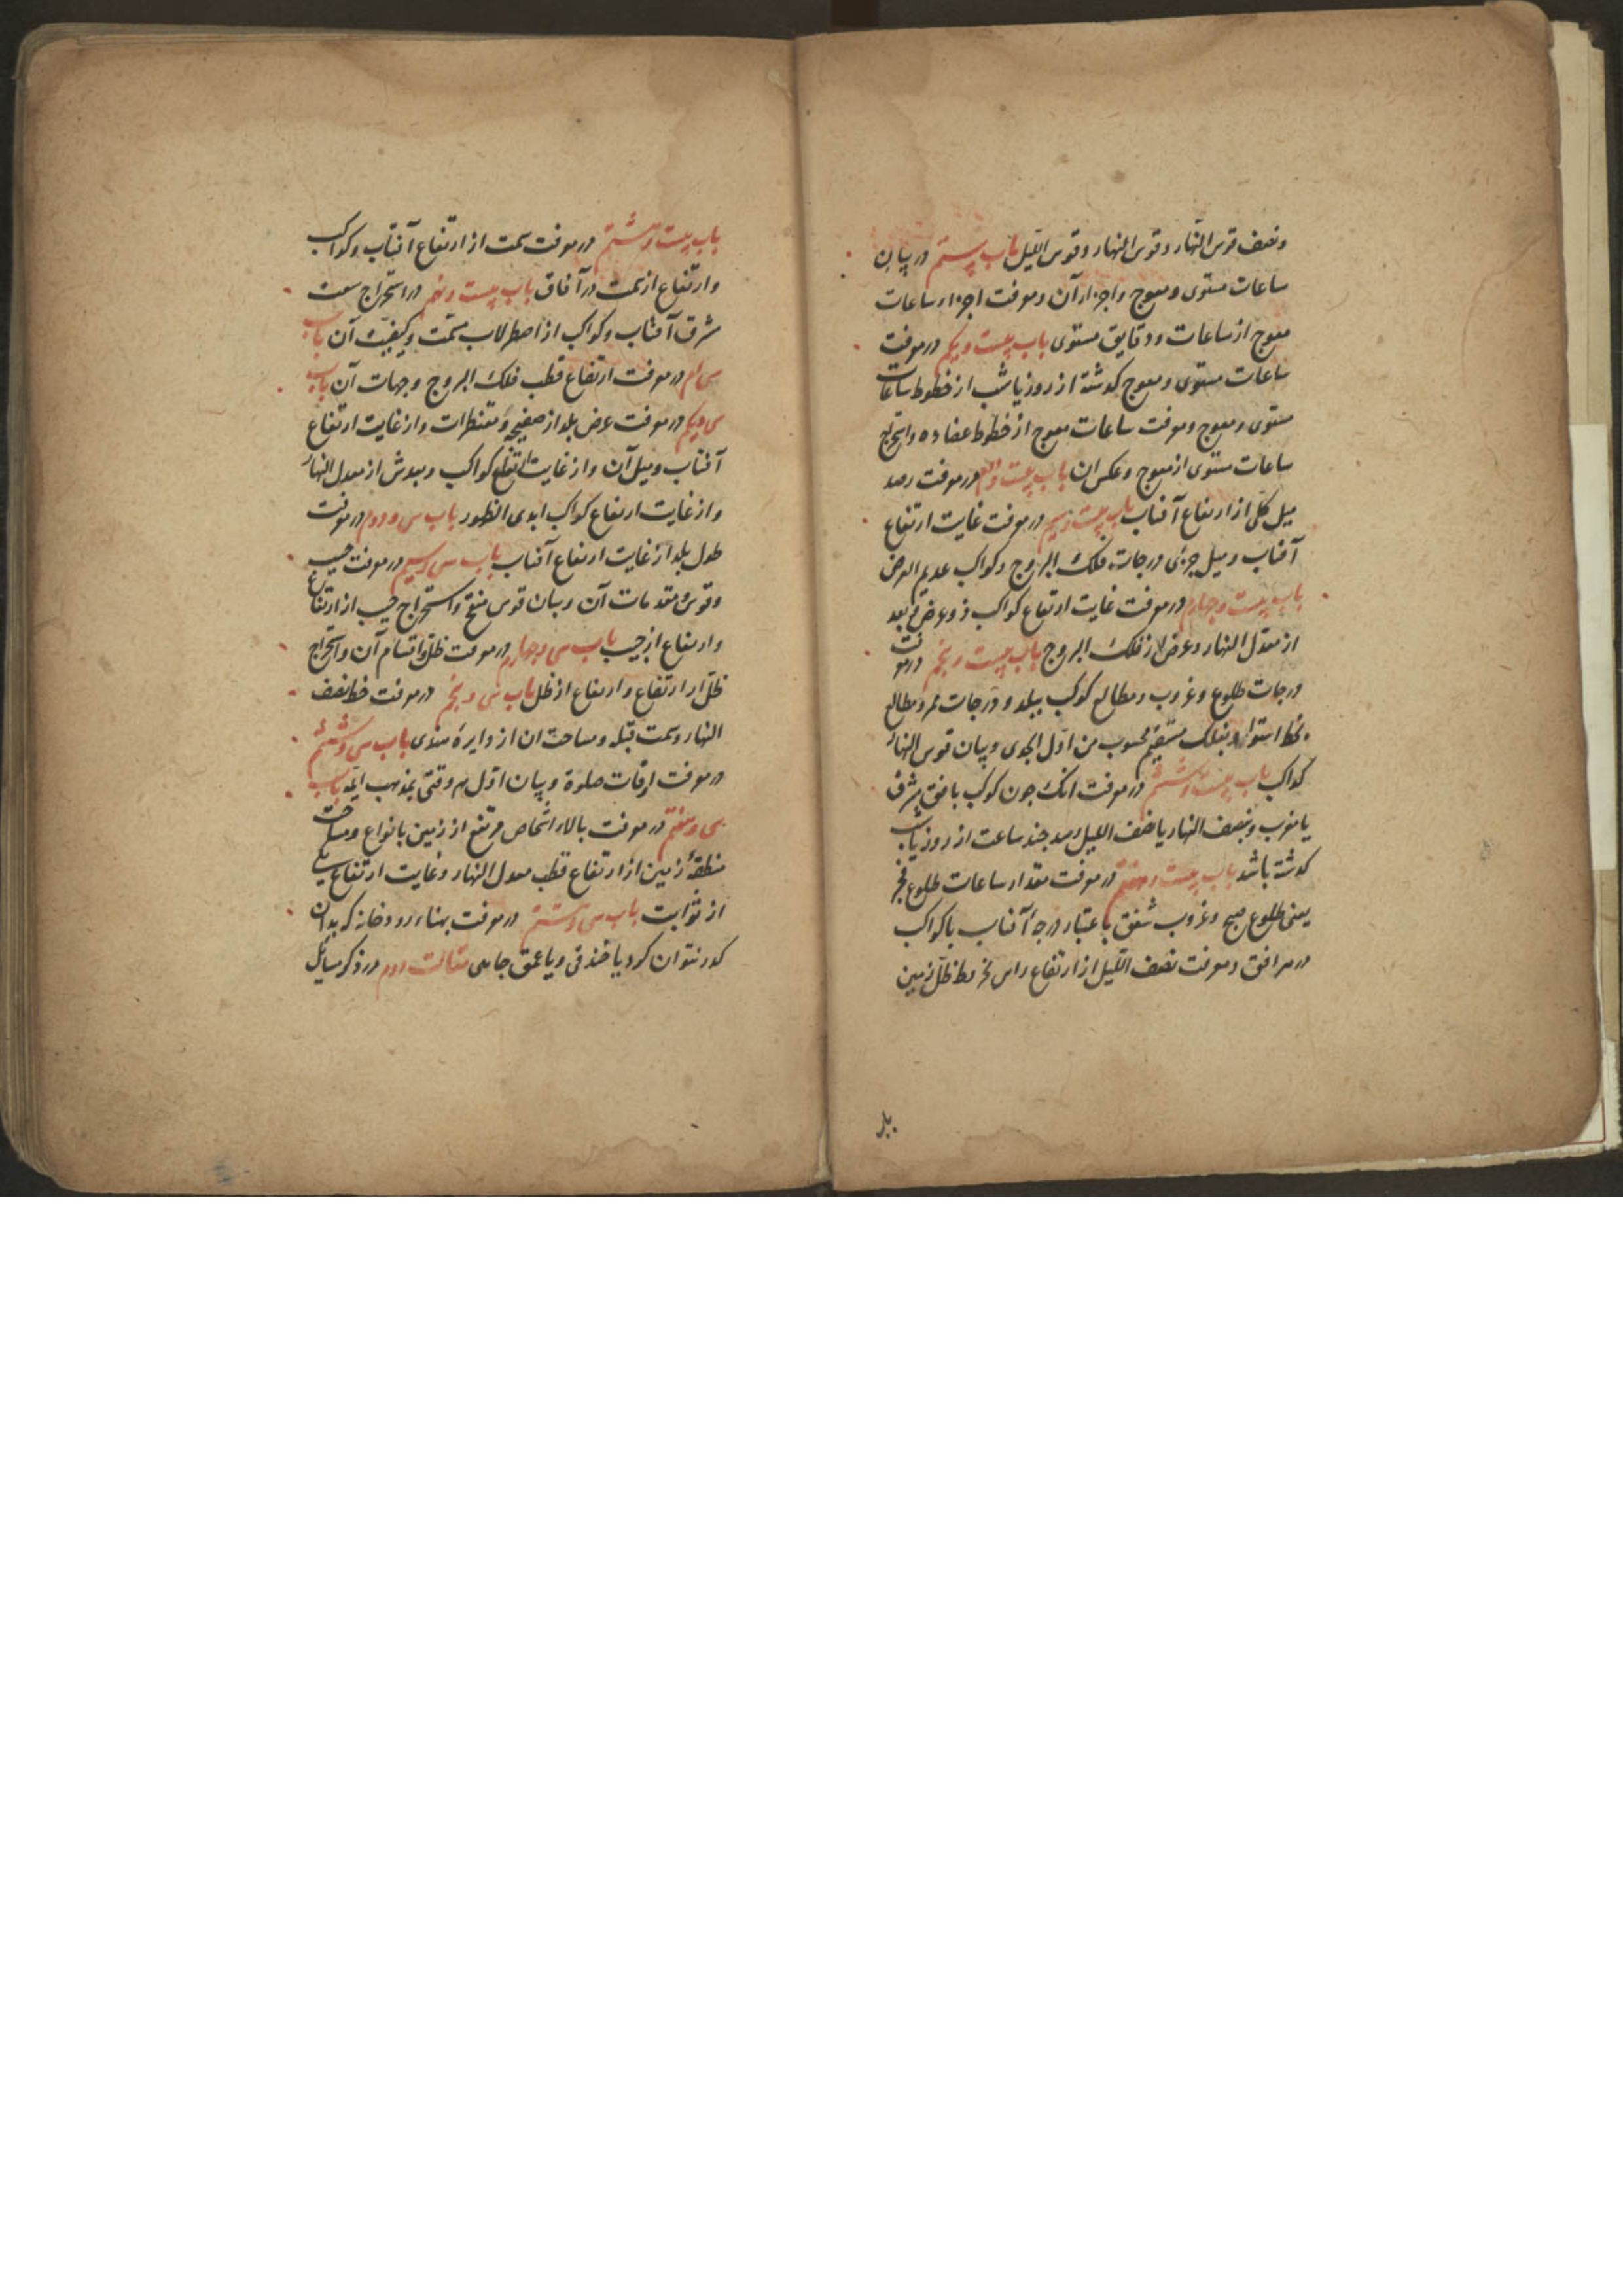 ونصف قوس النهار وقوس النهار وقوس اللیل باب بیستم در بیان
ساعات مستوی ومعوج واجزاء آن ومعرفت اجزاء ساعات
معوج از ساعات ودقایق مستوی باب بیست ویکم در معرفت
ساعات مستوی ومعوج کذشته از روز یا شب از خطوط ساعات
مستوی ومعوج ومعرفت ساعات معوج از خطوط عضاده واستخراج
ساعات مستوی از معوج وعکس ان باب بیست ودوم در معرفت رصد
میل کلی از ارتفاع آفتاب باب بیست وسیم در معرفت غایت ارتفاع
آفتاب ومیل جزئی درجات فلک البروج وکواکب عدیم العرض
باب بیست وچهارم در معرفت غایت ارتفاع کواکب ذو عرض وبعد
از معدل النهار وعرض از فلک البروج باب بیست وپنجم در معرفت
درجات طلوع وغروب ومطالع کوکب ببلد ودرجات ممر ومطالع
بخط استوا وبفلک مستقیم محسوب من اول الجدی وبیان قوس النهار
کواکب باب بیست وششم در معرفت انک جون کوکب بافق مشرق
یا مغرب وبنصف النهار یا نصف اللیل رسد جند ساعت از روز یا شب
کذشته باشد باب بیست وهفتم در معرفت مقدار ساعات طلوع فجر
یعنی طلوع صبح وغروب شفق باعتبار درجهٔ آفتاب یا کواکب
در هر افق ومعرفت نصف اللیل از ارتفاع راس مخروط ظل زمین
باب بیست وهشتم در معرفت سمت از ارتفاع آفتاب وکواکب
وارتفاع از سمت در آفاق باب بیست ونهم در استخراج سعت
مشرق آفتاب وکواکب از اصطرلاب مسمت وکیفیت آن باب
سی ام در معرفت ارتفاع قطب فلک البروج وجهات آن باب
سی ویکم در معرفت عرض بلد از صفیحه ومقنطرات واز غایت ارتفاع
آفتاب ومیل آن واز غایت ارتفاع کواکب وبعدش از معدل النهار
واز غایت ارتفاع کواکب ابدی الظهور باب سی ودوم در معرفت
طول بلد از غایت ارتفاع آفتاب باب سی وسیم در معرفت جیب
وقوس ومقدمات آن وبیان قوس منقح واستخراج جیب از ارتفاع
وارتفاع از جیب باب سی وچهارم در معرفت ظل واقسام آن واستخراج
ظل از ارتفاع وارتفاع از ظل باب سی وپنجم در معرفت خط نصف
النهار وسمت قبله ومساحت ان از دایرهٔ هندی باب سی وششم
در معرفت اوقات صلوة وبیان اول هر وقتی بمذهب ایمه باب
سی وهفتم در معرفت بالاء اشخاص مرتفع از زمین بانواع ومساحت
منطقهٔ زمین از ارتفاع قطب معدل النهار وغایت ارتفاع یکی
از ثوابت باب سی وهشتم در معرفت بهناء رودخانه که بدان
کذر نتوان کرد یا خندقی ویا عمق جاهی مقالت دوم در ذکر مسایل